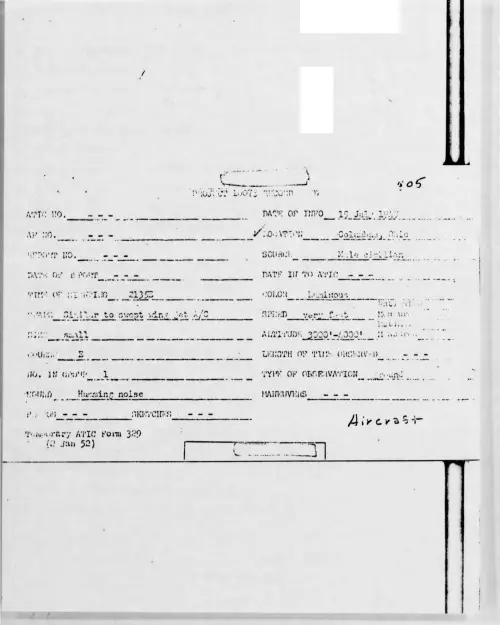 405
PROJECT 10073 RECORD
ATIC NO. - - - DATE OF INFO 19 July 1947
AF NO. - - - ✓ LOCATION Columbus, Ohio
REPORT NO. - - - SOURCE Male civilian
DATE OF REPORT - - - DATE IN TO ATIC - - -
TIME OF SIGHTING 2135E COLOR Luminous
SHAPE Similar to swept wing jet A/C SPEED very fast
SIZE small ALTITUDE 3000'-4000'
COURSE E LENGTH OF TIME OBSERVED - - -
NO. IN GROUP 1 TYPE OF OBSERVATION Ground
SOUND Humming noise MANEUVERS - - -
PHOTOS - - - SKETCHES - - -
Aircraft
Temporary ATIC Form 329
(2 Jan 52)